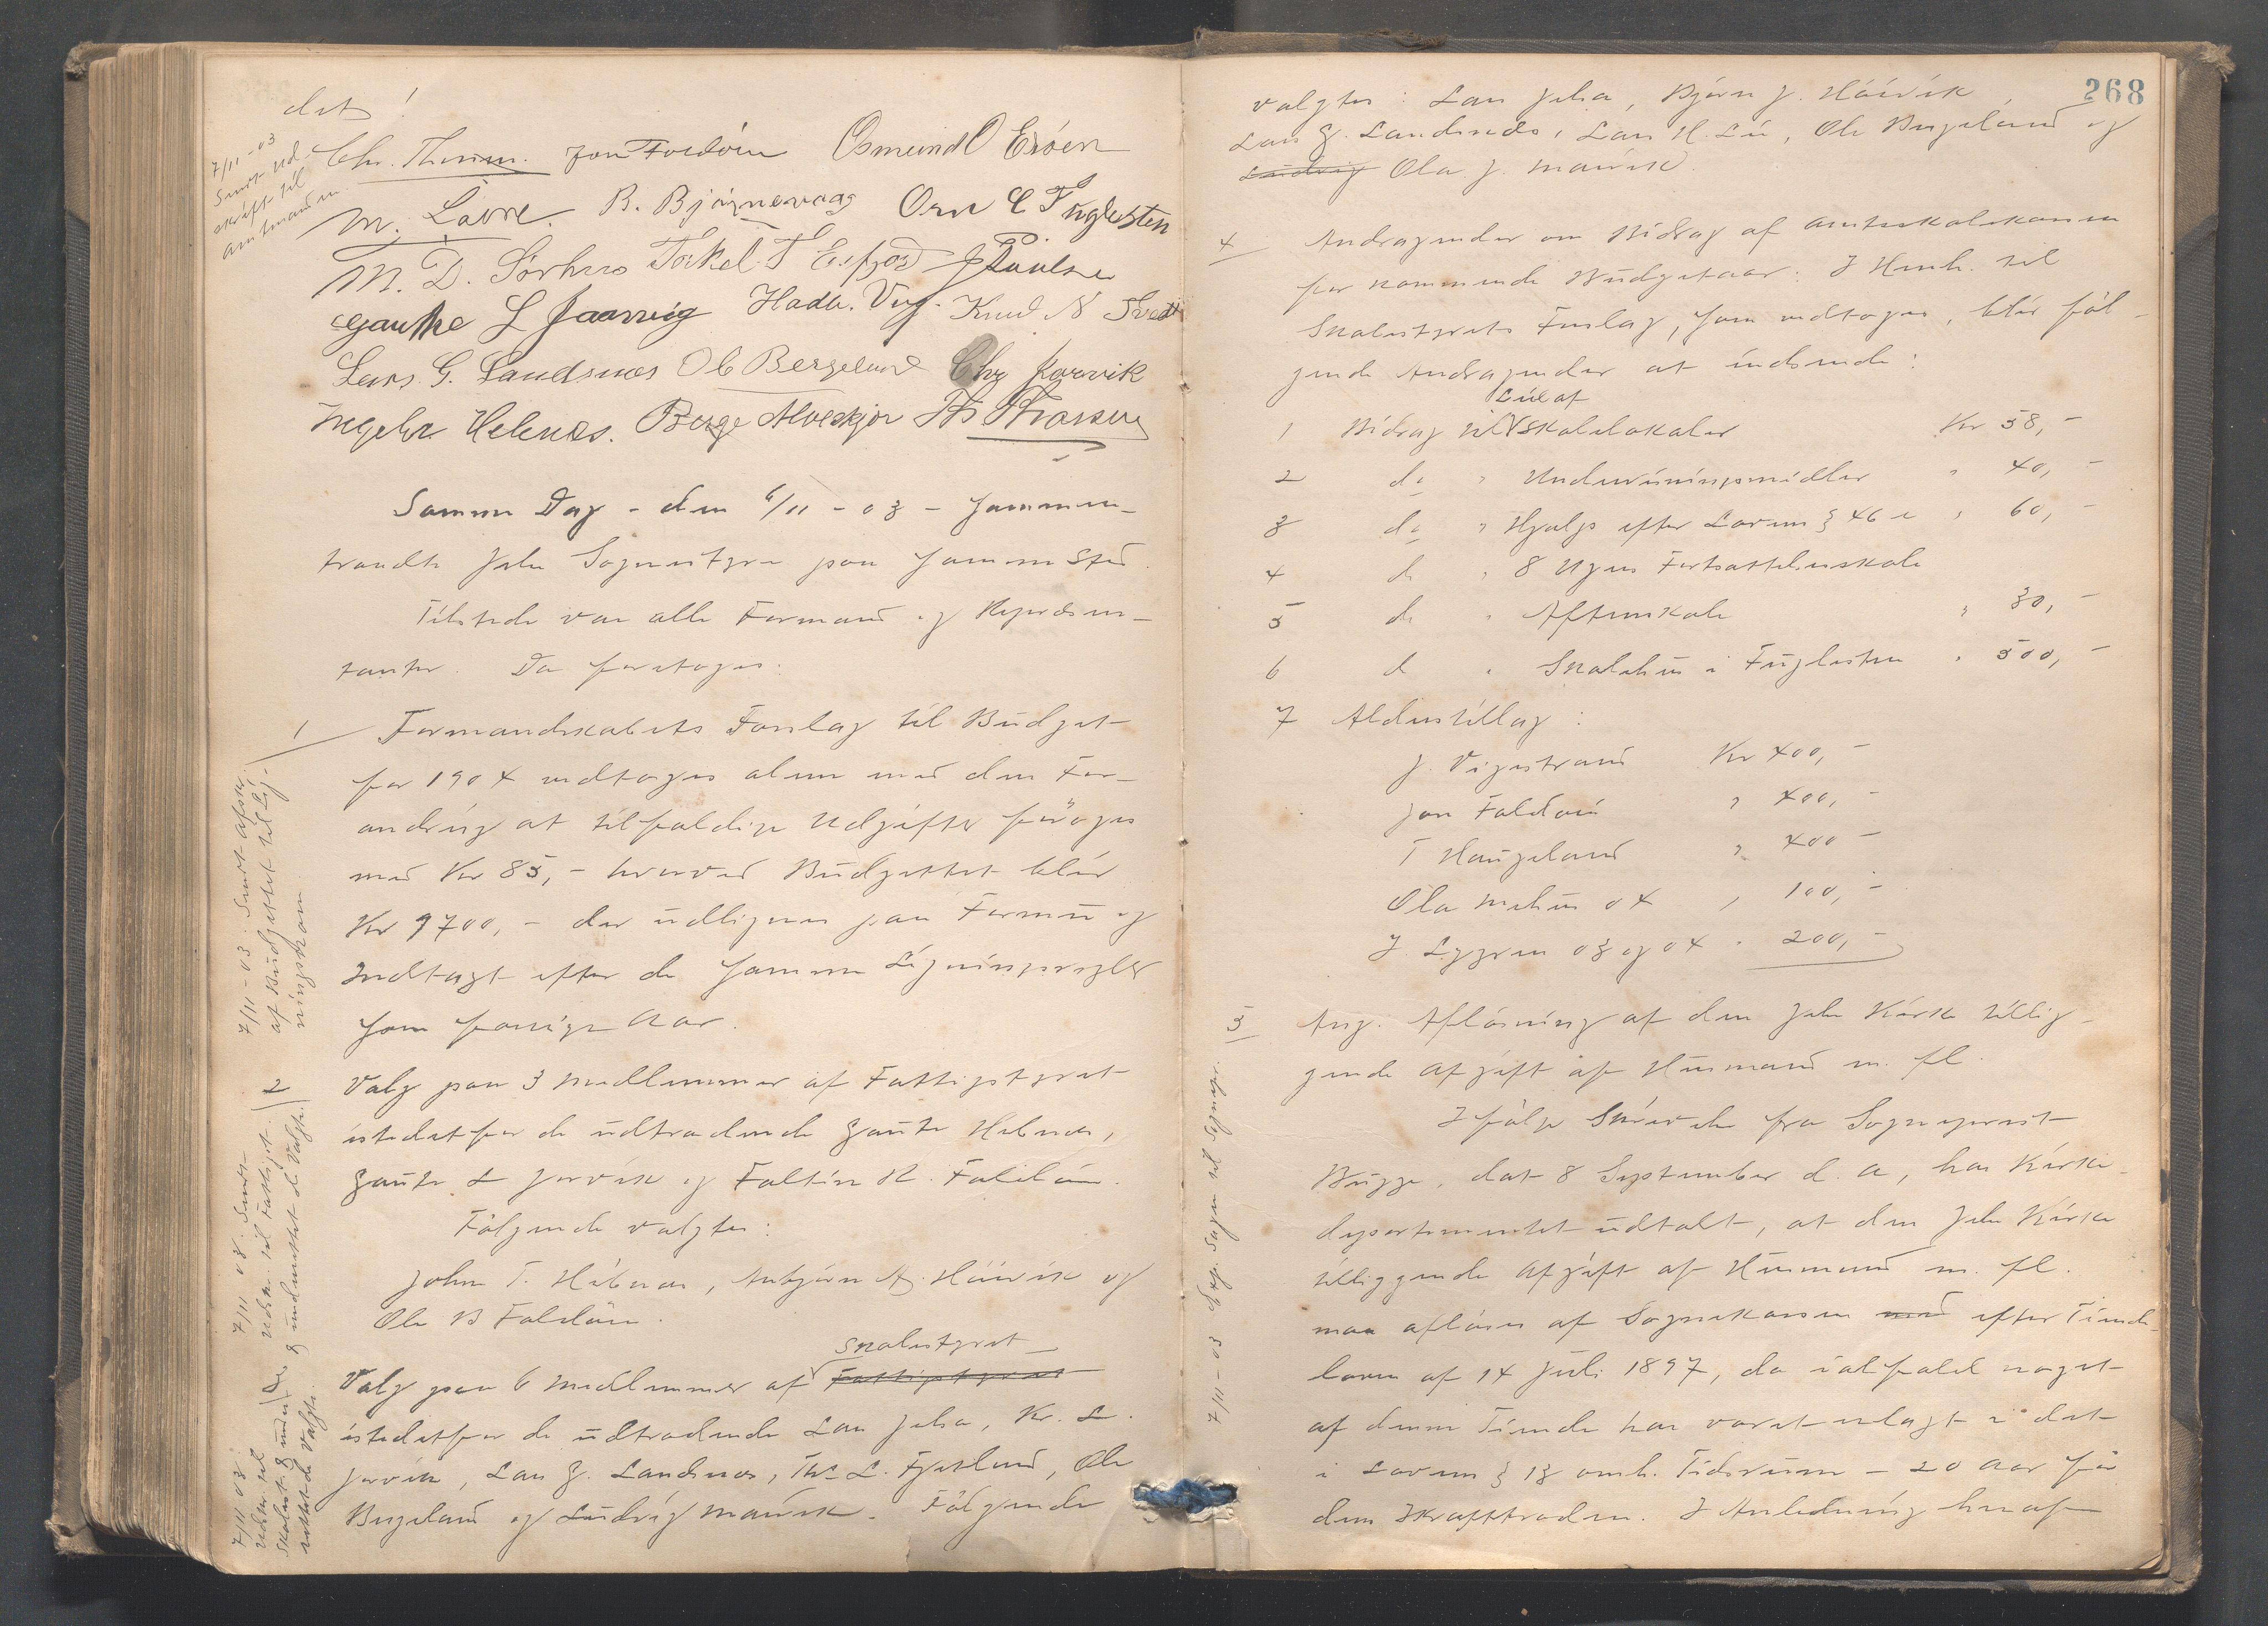 det!
7/11-03
Sendt Ud-
skrift til
amtmanden.
Chr. Thorsen. Jon Foldöen Osmund O Eröen
M. Lavre. B. Björnevaag Orm E Fuglesten
M. D. Sörhus Torkel T Eifjord J Poulsen
Gauthe L Jaarvig Hadv. Vig. Knud N Tveit
Lars G. Landsnæs Ole Bergeland Chr Jorvik
Ingebr. Helenæs. Børge Alveskjor
Samme Dag - den 6/11 - 03 - sammen-
traadte hele Sognestyre paa samme Sted.
Tilstede var alle Formænd og Repræsen-
tanter. Da foretoges:
1 Formandskabets Forslag til Budget
for 1904 vedtoges alene med den For-
andring at tilfældige Udgifter forøges
med Kr 85,- hvorved Budgettet blir
Kr 9700,- der udlignes paa Formue og
Indtægt efter de samme Ligningsregler
som forrige Aar.
7/11-03. Sendt afskr.
af Budgettet til Lig-
ningskom.
2 Valg paa 3 Medlemmer af Fattigstyret
istedetfor de udtrædende Gaute Helenæs,
Gaute L Jorvik og Faltin R. Foldöen.
Følgende valgtes:
John T. Helenæs, Anbjörn A. Höivik og
Ole B Foldöen.
7/11 03. Sendt
Udskr. til Fattigst.
& underrettet de Valgte.
3 Valg paa 6 Medlemmer af Fattigstyret Skolestyret
istedetfor de udtrædende Lars Jelsa, Kr. L.
Jorvik, Lars G. Landsnæs, Th. L. Fjetlund, Ole
Bergeland og Ludvig Marvik. Følgende
7/11 03
Udskr. til
Skolest. & under-
rettet de Valgte.
268
valgtes: Lars Jelsa, Björn J. Höivik,
Lars G. Landsnæs, Lars H. Lie, Ole Bergeland og
Ludvig Ola J. Marvik.
4 Andragender om Bidrag af Amtsskolekassen
for kommende Budgetaar: I Henh. til
Skolestyrets Forslag, som vedtoges, blir føl-
gende Andragender at indsende:
1 Bidrag til Leie af Skolelokaler Kr 58,-
2 do " Undervisningsmidler " 40,-
3 do " Hjælp efter Loven § 46 " 60,-
4 do " 8 Ugers Fortsættelsesskole
5 do " Aftenskole " 30,-
6 do " Skolehus i Fuglesten " 500,-
7 Alderstillæg:
J. Vigestrand Kr 400,-
Jon Foldöen " 400,-
T Haugeland " 400 -
Ola Mehus 04 " 100,-
J. Lyggren 03 og 04 " 200,-
5 Ang. Afløsning af den Jelse Kirke tillig-
gende Afgift af Husmænd m. fl.
Ifølge Skrivelse fra Sogneprest
Bugge, dat 8 September d. A, har Kirke-
departementet udtalt, at den Jelse Kirke
tilliggende Afgift af Husmænd m. fl.
maa afløses af Sognekassen med efter Tiende-
loven af 14 Juli 1897, da ialfald noget
af denne Tiende har været erlagt i det
i Lovens § 13 omh. Tidsrum - 20 Aar før
dens Ikrafttræden. I Anledning heraf
7/11-03 Exp. Sagen til Sognepr.